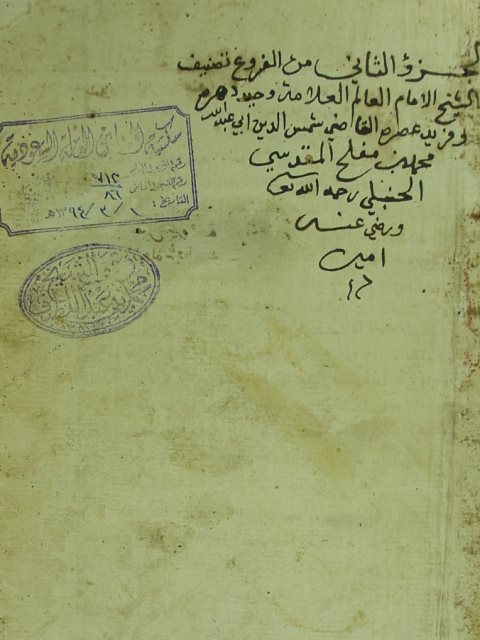 الجزؤ الثاني من الفروع تصنيف
الشيخ الامام العالم العلامة وحيد دهره
وفريد عصره القاضي شمس الدين ابي عبدالله
محمد بن مفلح المقدسي
الحنبلي رحمه الله تع
ورضي عنه
امين
مكتبة الرياض العامة السعودية
٧١٢
٨٦
التاريخ: ١ / ٣ / ١٣٩٤هـ